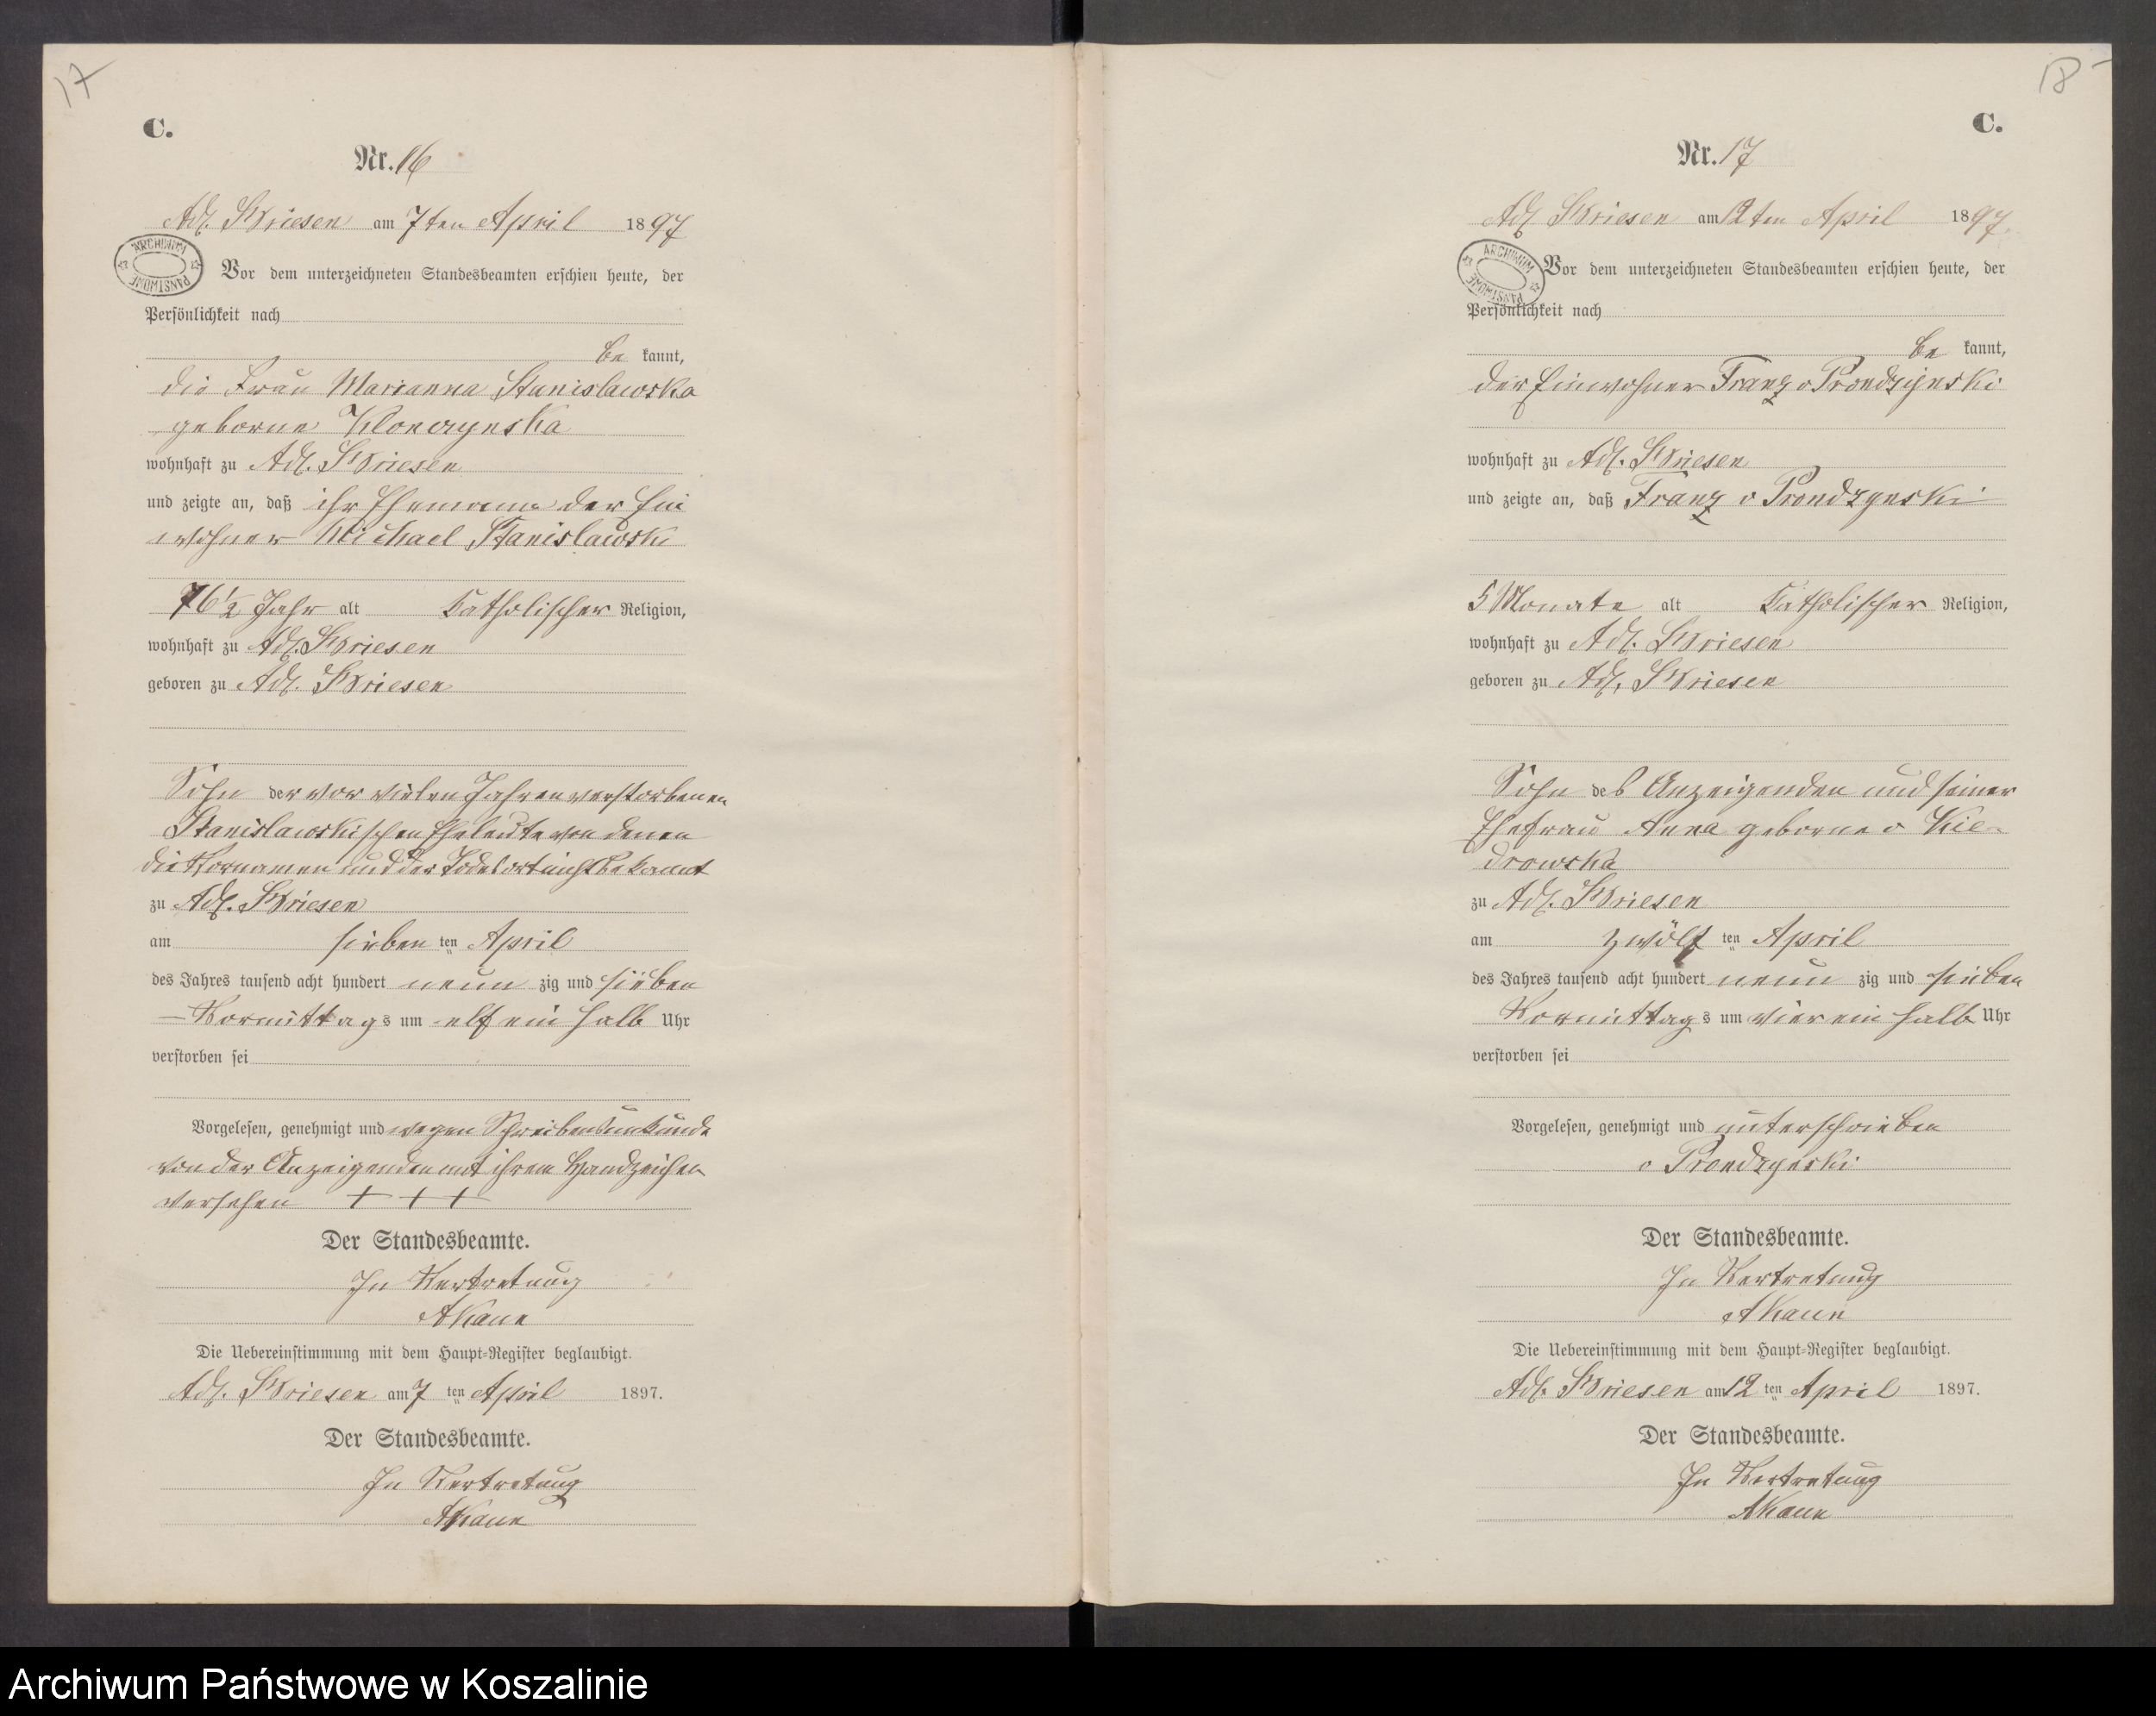 17
C.
Nr. 16
Adl. Briesen am 7ten April 1897
ARCHIWUM PAŃSTWOWE
Vor dem unterzeichneten Standesbeamten erschien heute, der
Persönlichkeit nach
be kannt,
die Frau Marianna Stanislawska
geborne Klonczynska
wohnhaft zu Adl. Briesen
und zeigte an, daß ihr Ehemann der Ein
wohner Michael Stanislawski
76 1/2 Jahr alt Katholischer Religion,
wohnhaft zu Adl. Briesen
geboren zu Adl. Briesen
Sohn der vor vielen Jahren verstorbenen
Stanislawskischen Eheleute von denen
die Vornamen und der Todesort nicht bekannt
zu Adl. Briesen
am sieben ten April
des Jahres tausend acht hundert neun zig und sieben
Vormittags um elf ein halb Uhr
verstorben sei
Vorgelesen, genehmigt und wegen Schreibensunkunde
von der Anzeigenden mit ihrem Handzeichen
versehen + + +
Der Standesbeamte.
In Vertretung
A Kaun
Die Uebereinstimmung mit dem Haupt-Register beglaubigt.
Adl. Briesen am 7 ten April 1897.
Der Standesbeamte.
In Vertretung
A Kaun
18
C.
Nr. 17
Adl. Briesen am 12ten April 1897.
ARCHIWUM PAŃSTWOWE
Vor dem unterzeichneten Standesbeamten erschien heute, der
Persönlichkeit nach
be kannt,
der Einwohner Franz v Prondzynski
wohnhaft zu Adl. Briesen
und zeigte an, daß Franz v Prondzynski
5 Monate alt Katholischer Religion,
wohnhaft zu Adl. Briesen
geboren zu Adl. Briesen
Sohn des Anzeigenden und seiner
Ehefrau Anna geborne v Kie-
drowska
zu Adl. Briesen
am zwölf ten April
des Jahres tausend acht hundert neun zig und sieben
Vormittags um vier ein halb Uhr
verstorben sei
Vorgelesen, genehmigt und unterschrieben
v Prondzynski
Der Standesbeamte.
In Vertretung
A Kaun
Die Uebereinstimmung mit dem Haupt-Register beglaubigt.
Adl. Briesen am 12 ten April 1897.
Der Standesbeamte.
In Vertretung
A Kaun
Archiwum Państwowe w Koszalinie